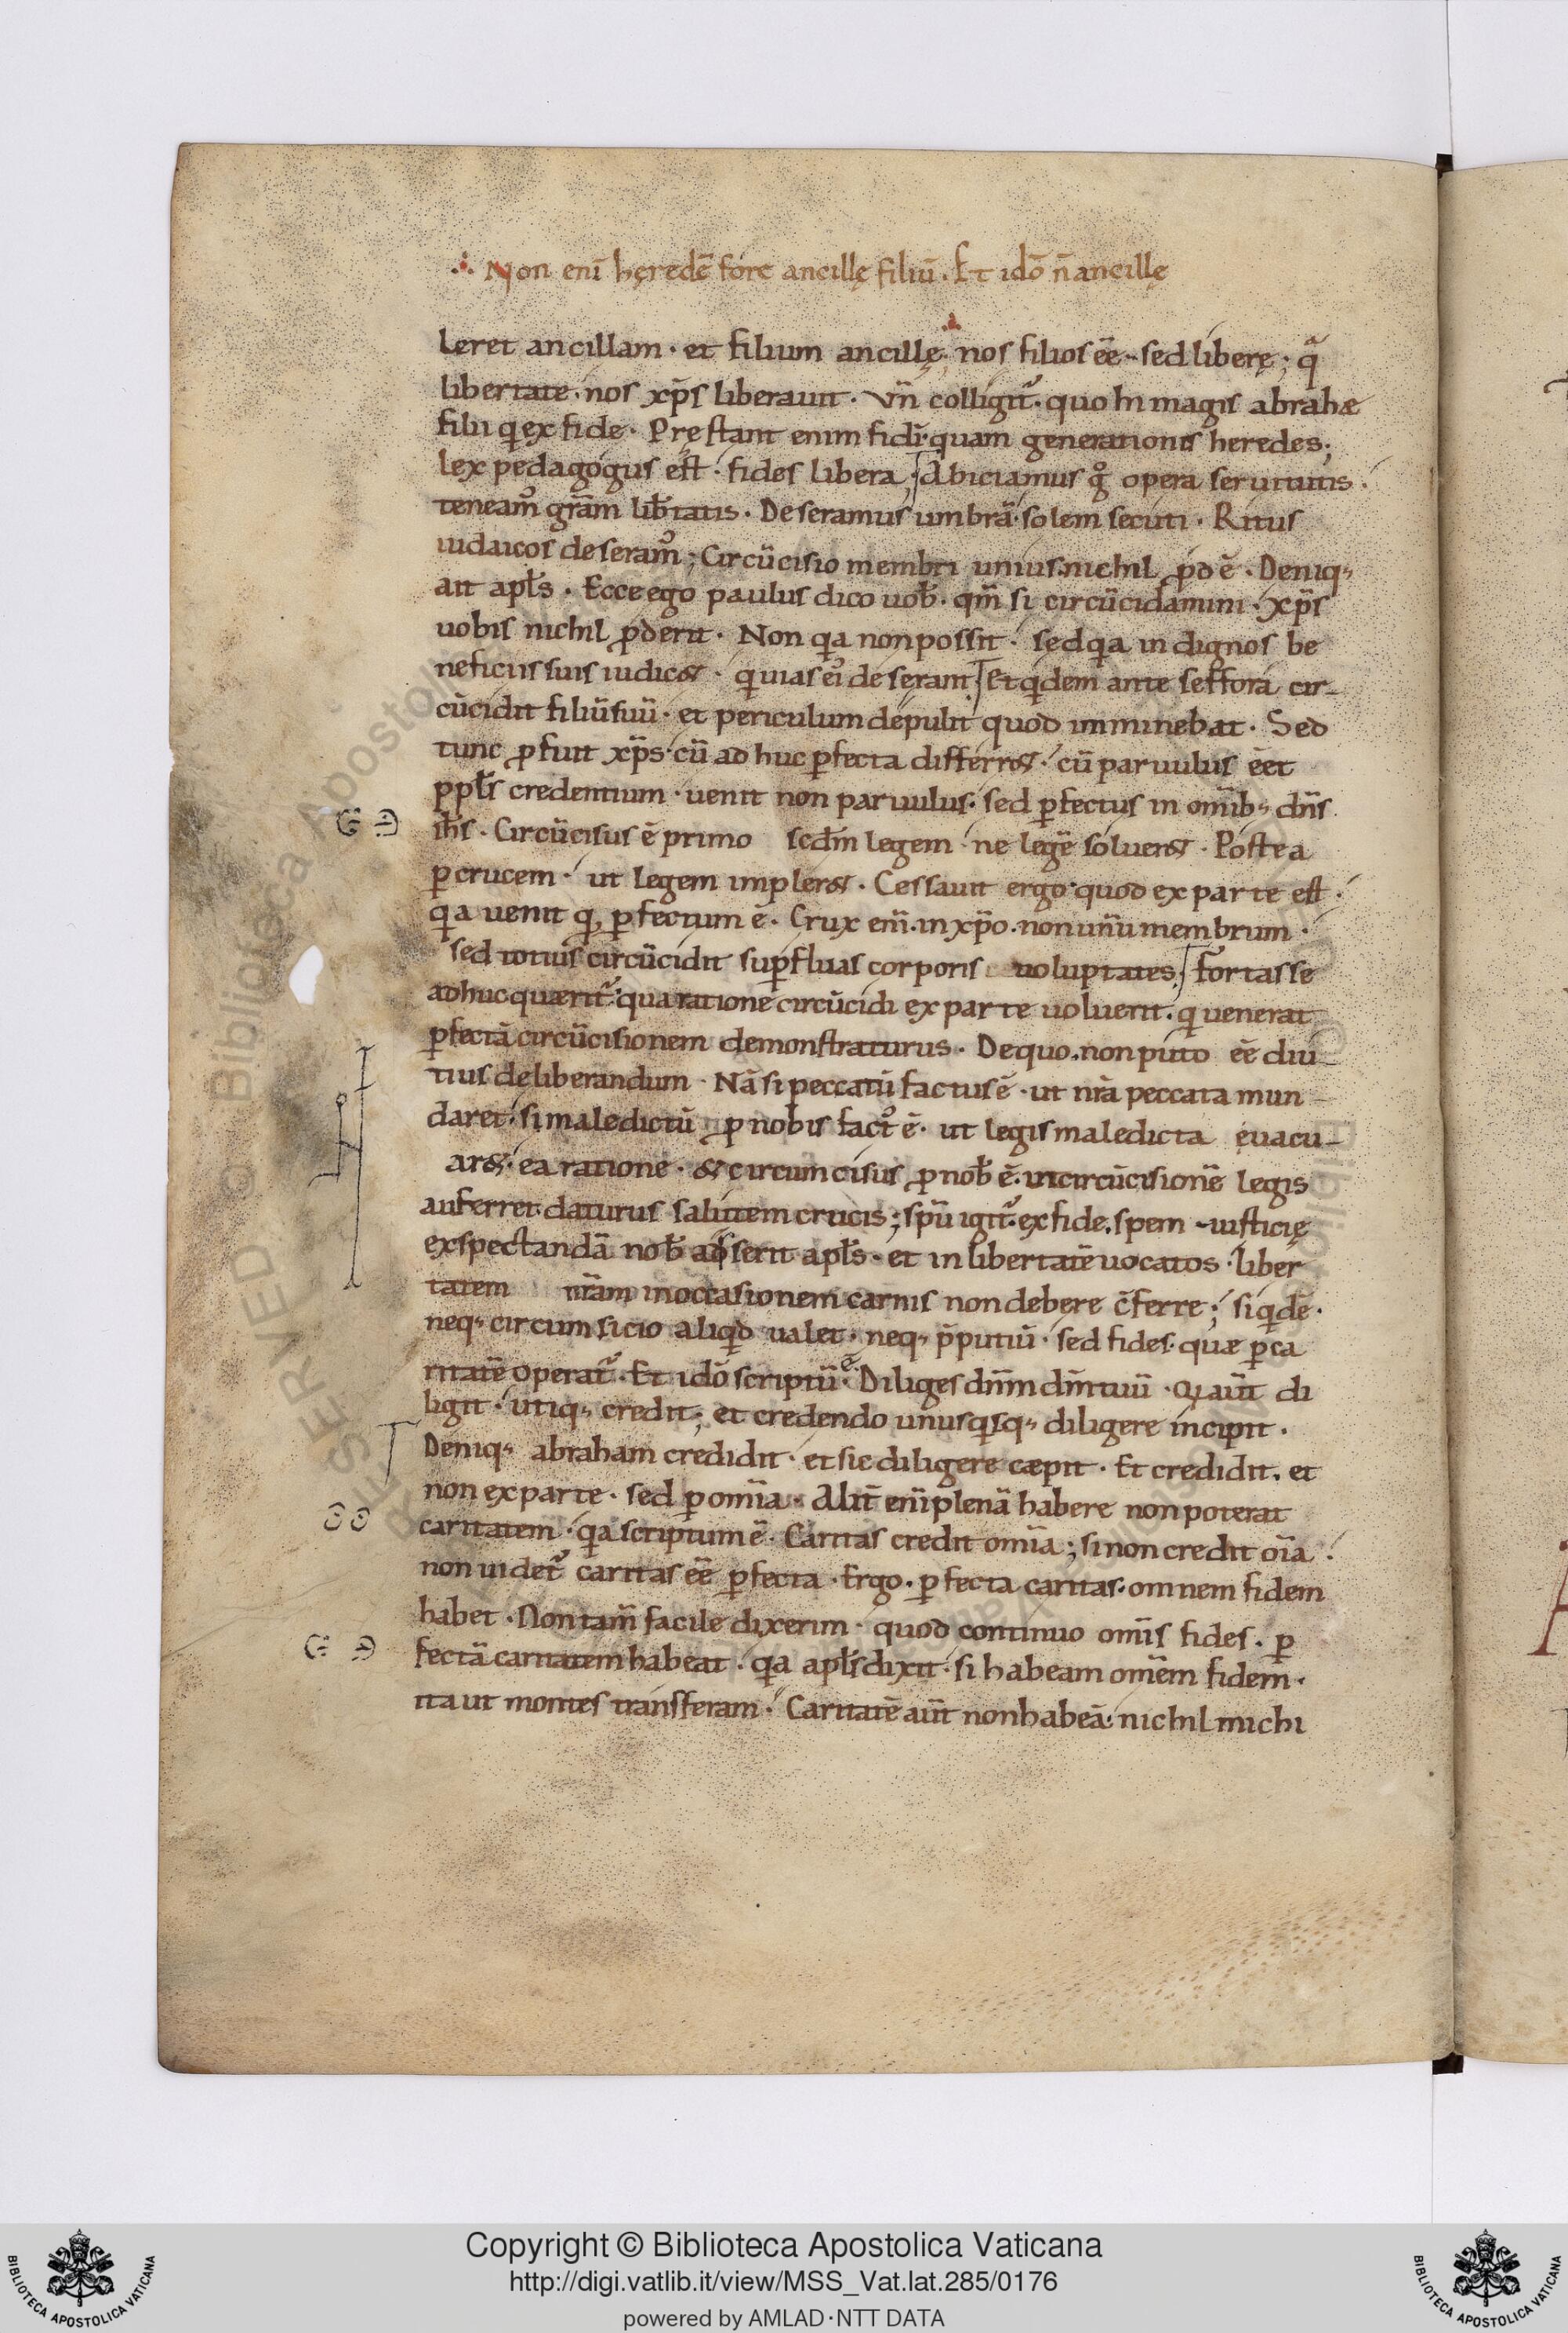 ∴ Non eni͞ hęredē fore ancillę filiū. Et idō n̄ ancillę
leret ancillam · et filium ancillę; nos filios ēe · sed liberę; qᵃ
libertate · nos xp̄s liberauit · Vn̄ colligit᷒ · quo hi magis abrahæ
filii qi ex fide · Pręstant enim fidi᷒ quam generationis heredes;
lex pedagogus est · fides libera; Abiciamus gͦ opera seruitutis ·
teneam᷒ grām lib̄tatis · Deseramus umbrā · solem secuti · Ritus
iudaicos deseram᷒; Circūcisio membri unius · nichil ꝓdē · Deniq;
ait apl̄s · Ecce ego paulus dico uob̄ · qm̄ si circūcidamini · xp̄s
uobis nichil ꝓderit · Non qa non possit · sed qa indignos be
neficiis suis iudic& · qui uias ei᷒ deserant Et qidem ante seffora cir-
cūcidit filiū suū · et periculum depulit quod imminebat · Sed
tunc ꝓfuit xp̄s · cū adhuc ꝑfecta differr& · cū paruulus ēet
ppl̄s credentium · uenit non paruulus · sed ꝑfectus in om̄ib; dn̄s
ih̄s · Circūcisus ē primo scdm̄ legem · ne legē soluer& · Postea
ꝑ crucem · ut legem impler& · Cessauit ergo · quod ex parte est ·
qa uenit qd ꝑfectum ē · Crux eni͞ · in xp̄o · non unū membrum ·
sed totius circūcidit suꝑfluas corporis uoluptates; Fortasse
adhuc quærit᷒ · qua ratione circūcidi ex parte uoluerit · qi uenerat
ꝑfectā circūcisionem demonstraturus · De quo · non puto ēe diu-
tius deliberandum · Nā si peccatū factus ē · ut nr̄a peccata mun-
daret · si maledictū ꝓ nobis fact᷒ ē · ut legis maledicta euacu-
ar& · ea ratione · & circumcisus ꝓ nob̄ ē · ut circūcisionē legis
auferret · daturus salutem crucis; spū igit᷒ · ex fide · spem · iusticię
exspectandā nob̄ adserit apl̄s · et in libertatē uocatos · liber
tatem nr̄am in occasionem carnis non debere c̄ferre; siqdē ·
neq; circumsicio aliqd ualet · neq; p̄putiū · sed fides · quæ ꝑ ca
ritatē operat᷒ · Et idō scriptū ē · Diliges dn̄m dm̄ tuū · Qi aūt di
ligit · utiq; credit; et credendo unusqisq; diligere incipit ·
Deniq; abraham credidit · et sic diligere cæpit · Et credidit · et
non ex parte · sed ꝑ om̄ia · Alit̄ eni͞ plenā habere non poterat
caritatem · qa scriptum ē · Caritas credit om̄ia; si non credit oīa ·
non uidet᷒ caritas ēe ꝑfecta · Ergo · ꝑfecta caritas · omnem fidem
habet · Non tam̄ facile dixerim · quod continuo om̄is fides · ꝑ
fectā caritatem habeat · qa apl̄s dixit · si habeam om̄em fidem ·
ita ut montes transferam · Caritatē aūt non habeā · nichil michi
Copyright © Biblioteca Apostolica Vaticana
http://digi.vatlib.it/view/MSS_Vat.lat.285/0176
powered by AMLAD·NTT DATA
BIBLIOTECA APOSTOLICA VATICANA
BIBLIOTECA APOSTOLICA VATICANA